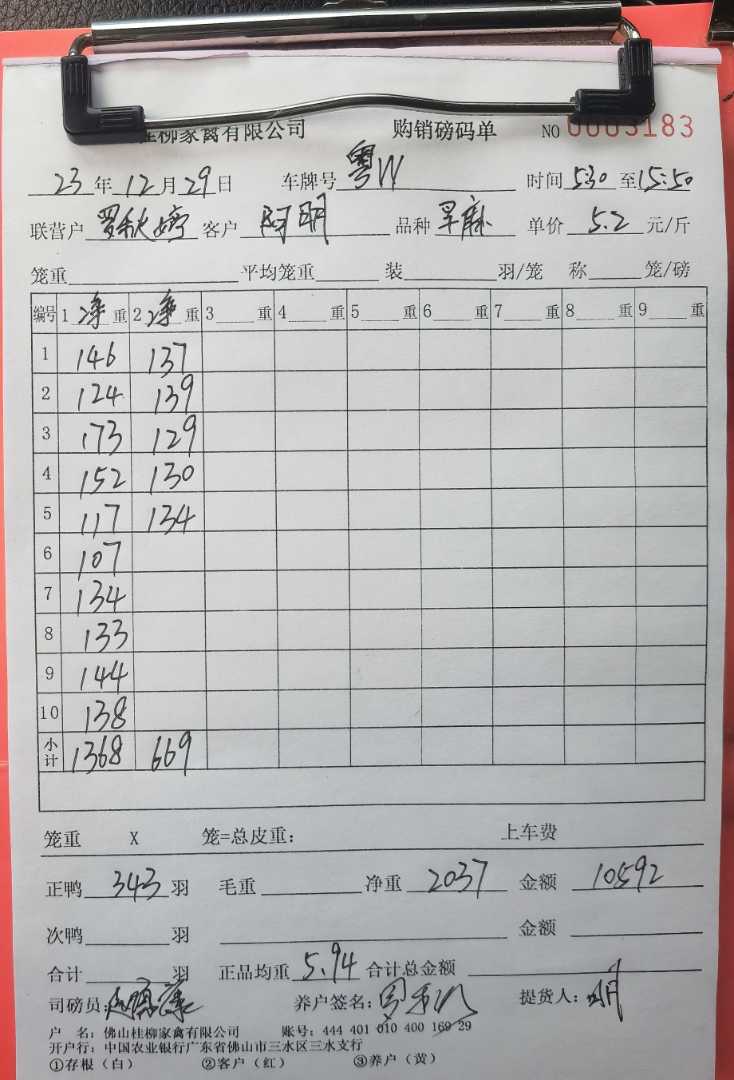 桂柳家禽有限公司 购销磅码单 NO 0003183
23年12月29日 车牌号 粤W 时间 5:30 至 15:50
联营户 罗秋婷 客户 阿明 品种 旱麻 单价 5.2 元/斤
笼重 平均笼重 装 羽/笼 称 笼/磅
编号 1 净 重 2 净 重 3 重 4 重 5 重 6 重 7 重 8 重 9 重
1 146 137
2 124 139
3 173 129
4 152 130
5 117 134
6 107
7 134
8 133
9 144
10 138
小计 1368 669
笼重 X 笼=总皮重: 上车费
正鸭 343 羽 毛重 净重 2037 金额 10592
次鸭 羽 金额
合计 羽 正品均重 5.94 合计总金额
司磅员: 养户签名: 提货人: 明
户 名: 佛山桂柳家禽有限公司 账号: 444 401 010 400 169 29
开户行: 中国农业银行广东省佛山市三水区三水支行
①存根(白) ②客户(红) ③养户(黄)